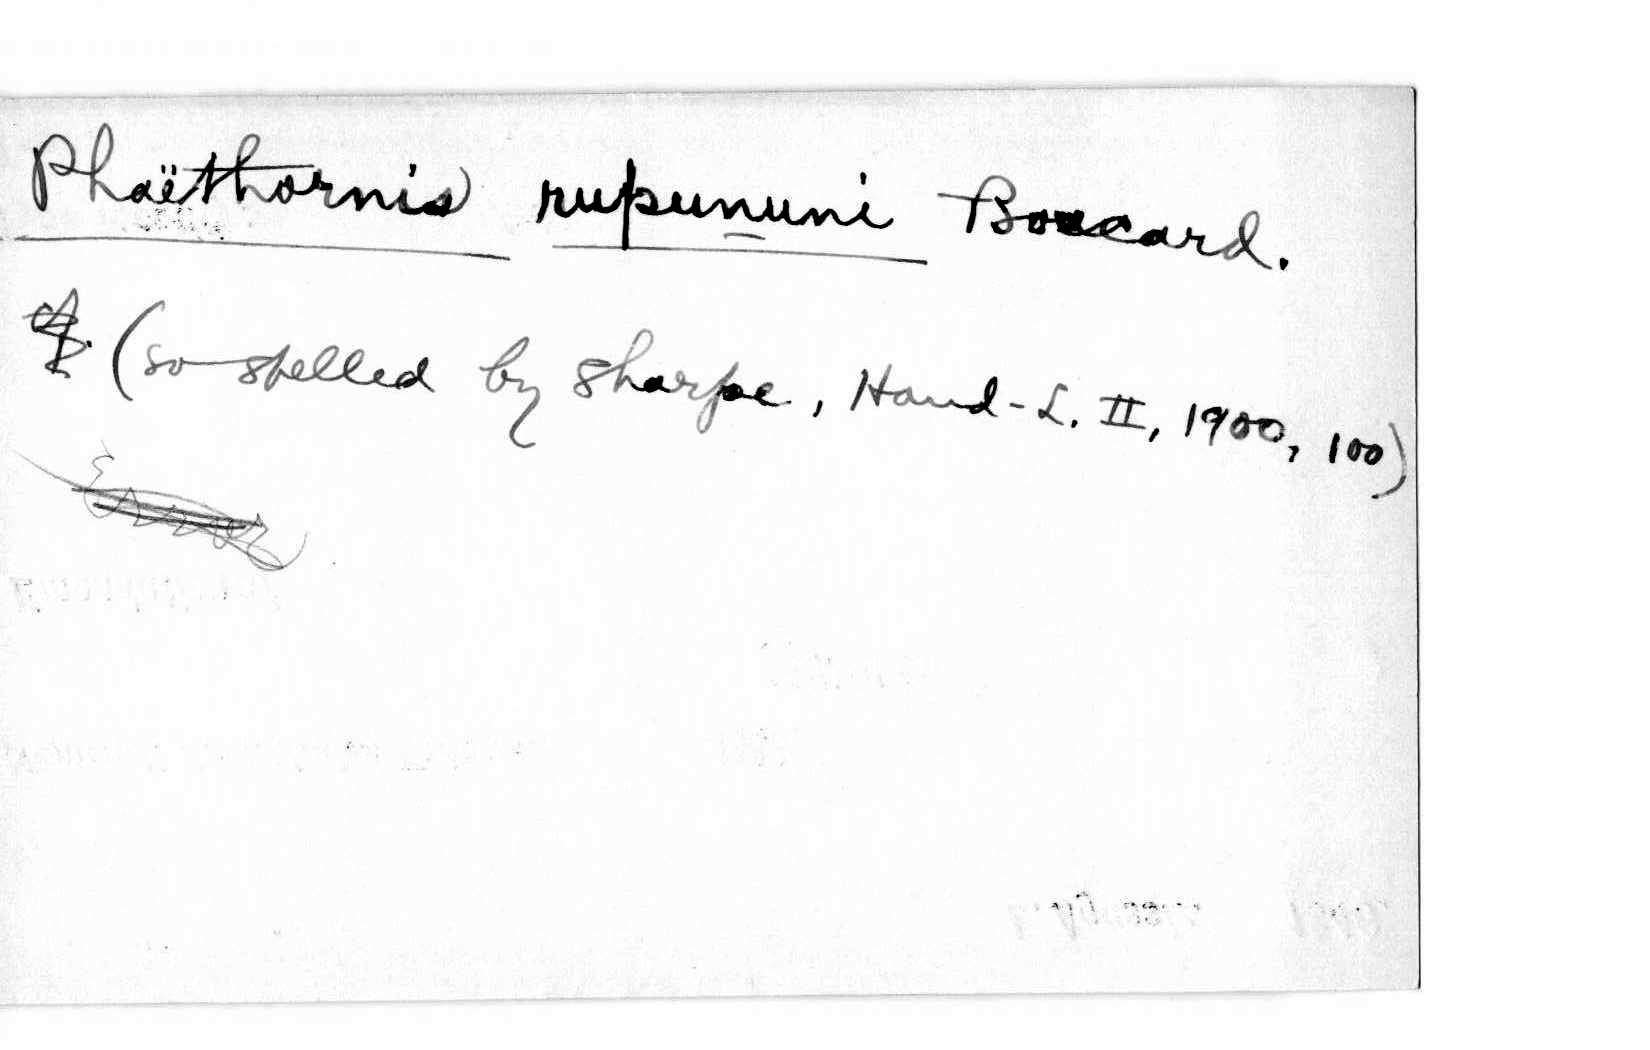 Phaëthornis rupununi Boucard.
(so spelled by Sharpe, Hand-L. II, 1900, 100)